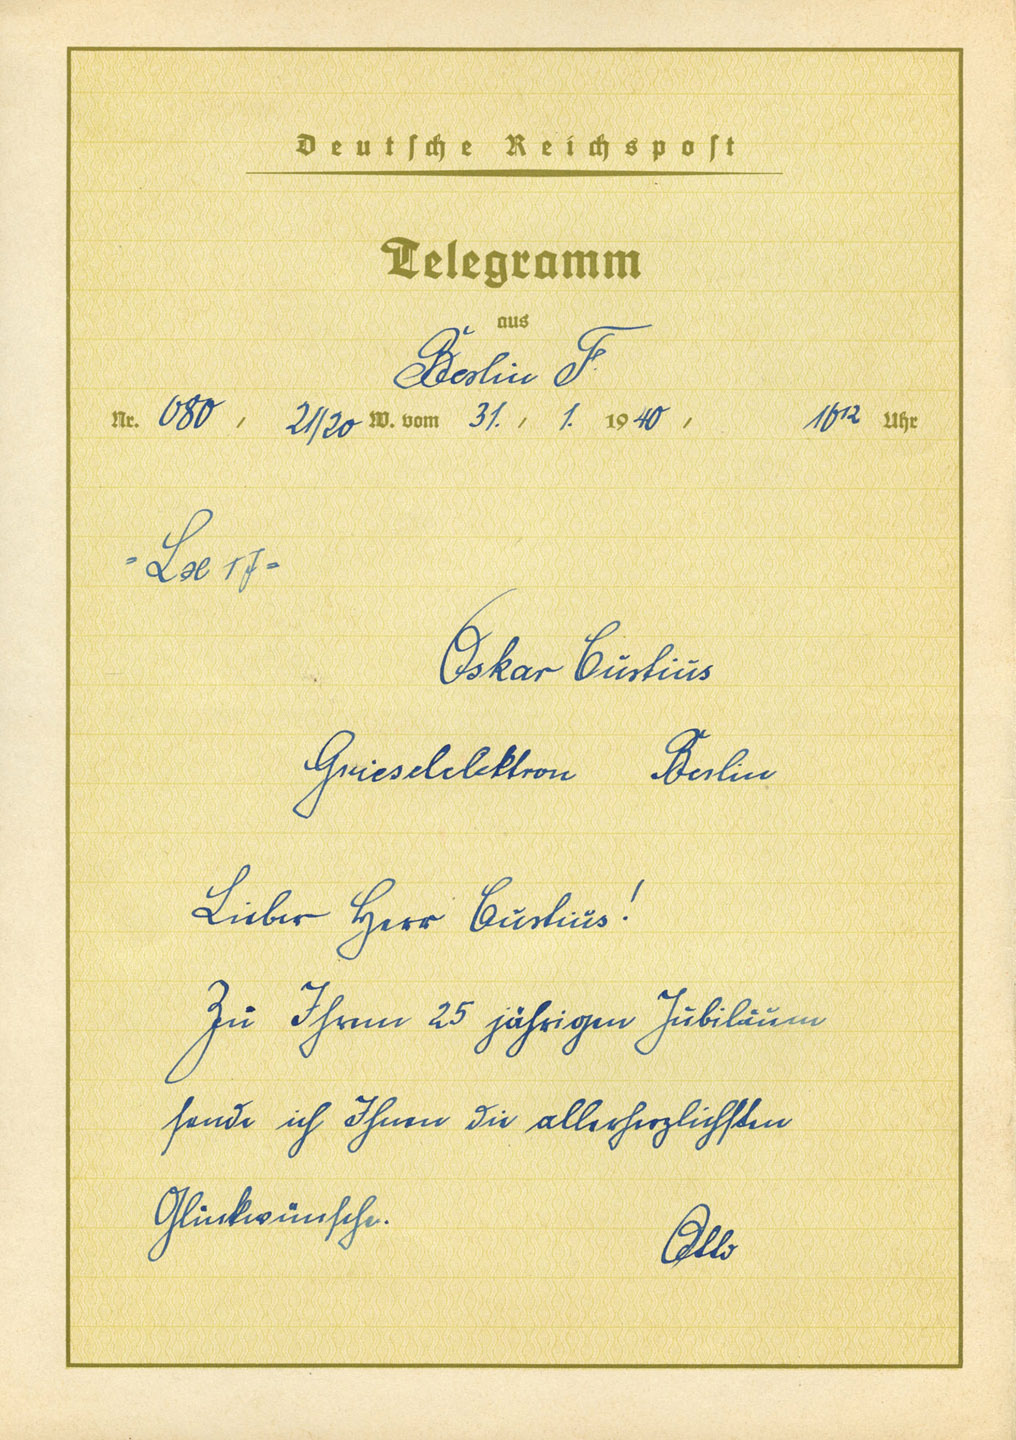 Deutsche Reichspost
Telegramm
aus
Berlin F.
Nr. 080 / 21/20 W. vom 31. / 1. 1940 / 16 12 Uhr
=Lx 17=
Oskar Custius
Grieselelektron Berlin
Lieber Herr Custius!
Zu Ihrem 25 jährigen Jubiläum
sende ich Ihnen die allerherzlichsten
Glückwünsche.
Otto